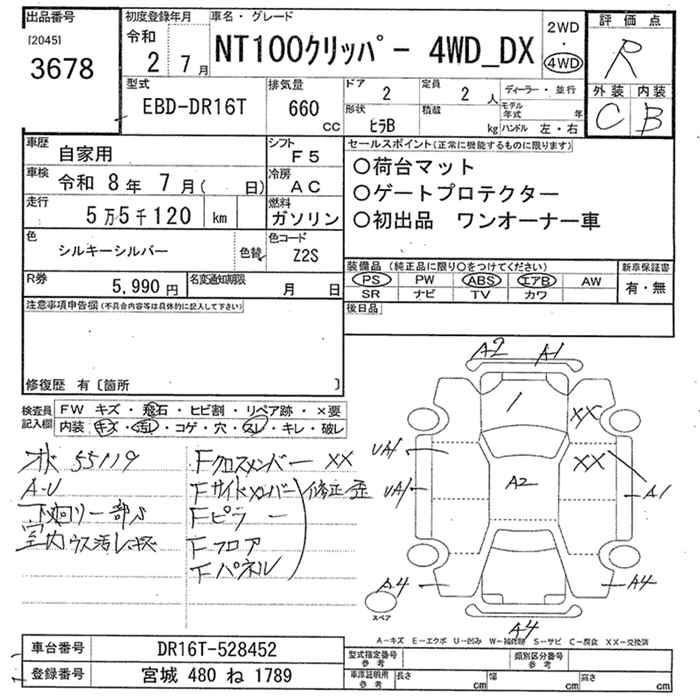 出品番号
[2045]
3678
初度登録年月
令和
2 7月
車名・グレード
NT100クリッパー 4WD_DX
2WD
・
4WD
評価点
R
外装 内装
C B
型式
EBD-DR16T
排気量
660
cc
ドア 2
定員 2 人
ディーラー・並行
形状 ヒラB
積載 kg
モデル年式 年
ハンドル 左・右
車歴 自家用
シフト F5
車検 令和 8年 7月( 日)
冷房 AC
走行 5万5千120 km
燃料 ガソリン
色 シルキーシルバー 色替
色コード Z2S
R券 5,990円
名変通知期限 月 日
セールスポイント(正常に機能するものに限ります)
○荷台マット
○ゲートプロテクター
○初出品 ワンオーナー車
装備品 (純正品に限り○をつけてください)
新車保証書
PS PW ABS エアB AW
SR ナビ TV カワ
有・無
後日品
注意事項申告欄(不具合内容等は具体的に記入して下さい)
修復歴 有〔箇所 〕
検査員記入欄
FW キズ・飛石・ヒビ割・リペア跡・×要
内装 キズ・汚レ・コゲ・穴・スレ・キレ・破レ
55119
A-U
下廻リ一部S
室内ウス汚レキズ
Fクロスメンバー XX
Fサイドメンバー
Fピラー
Fフロア
Fパネル
修正・歪
A2 A1
1
XX
XX
UA1
UA1
A2
A1
A4
A4
A4
スペア
A-キズ E-エクボ U-凹み W-補修跡 S-サビ C-腐食 XX-交換済
車台番号 DR16T-528452
登録番号 宮城 480 ね 1789
型式指定番号 参考
類別区分番号 参考
車庫証明用 参考
長さ cm
幅 cm
高さ cm